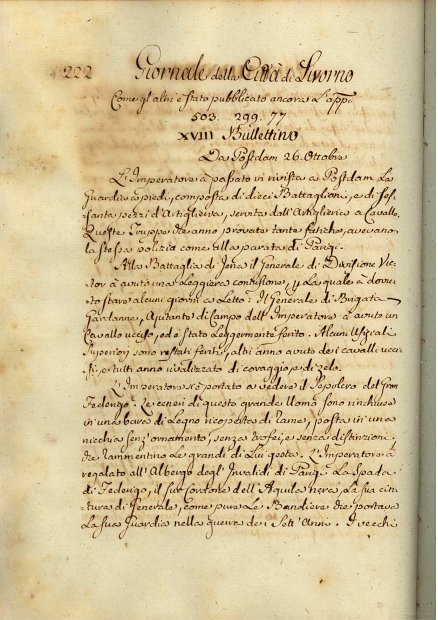 222 Giornale della Città di Livorno
Come gl'altri è stato pubblicato ancora L'app.
503. 299. 77
XVIII Bullettino
Da Postdam 26. Ottobre
L'Imperatore à passato in rivista a Postdam La
Guardia a piedi, composta di dieci Battaglioni, e di ses,
santa pezzi d'Artiglieria, servita dall'Artiglieria a Cavallo.
Queste Truppe che anno provate tante fatiche, avevano
la stessa polizia come alla parata di Parigi.
Alla Battaglia di Jena il Generale di Divisione Vic,
tor à avuto una Leggiera contusione, p. La quale à dovu,
to stare alcuni giorni a Letto: Il Generale di Brigata
Gardanne, Ajutante di campo dell'Imperatore à avuto un
Cavallo ucciso, ed è stato Leggermente ferito. Alcuni Ufizali
Superiori sono restati feriti, altri anno avuto dei cavalli ucci,
si, e tutti anno rivalizzato di coraggio, e di zelo.
L'Imperatore s'è portato a vedere il Sepolcro del Gran
Federigo: Le ceneri di questo grande Uomo sono rinchiuse
in una bara di Legno ricoperta di rame, posta in una
nicchia senz'ornamento, senza trofei, e senza distinzioni
che rammentino Le grandi di Lui gesta. L'Imperatore à
regalato all'Albergo degl'Invalidi di Parigi La Spada
di Federigo, il suo Cordone dell'Aquila nera, La sua cin,
tura di Generale, come pure Le Bandiere che portava
La sua Guardia nella guerra dei Sett'Anni. I vecchi